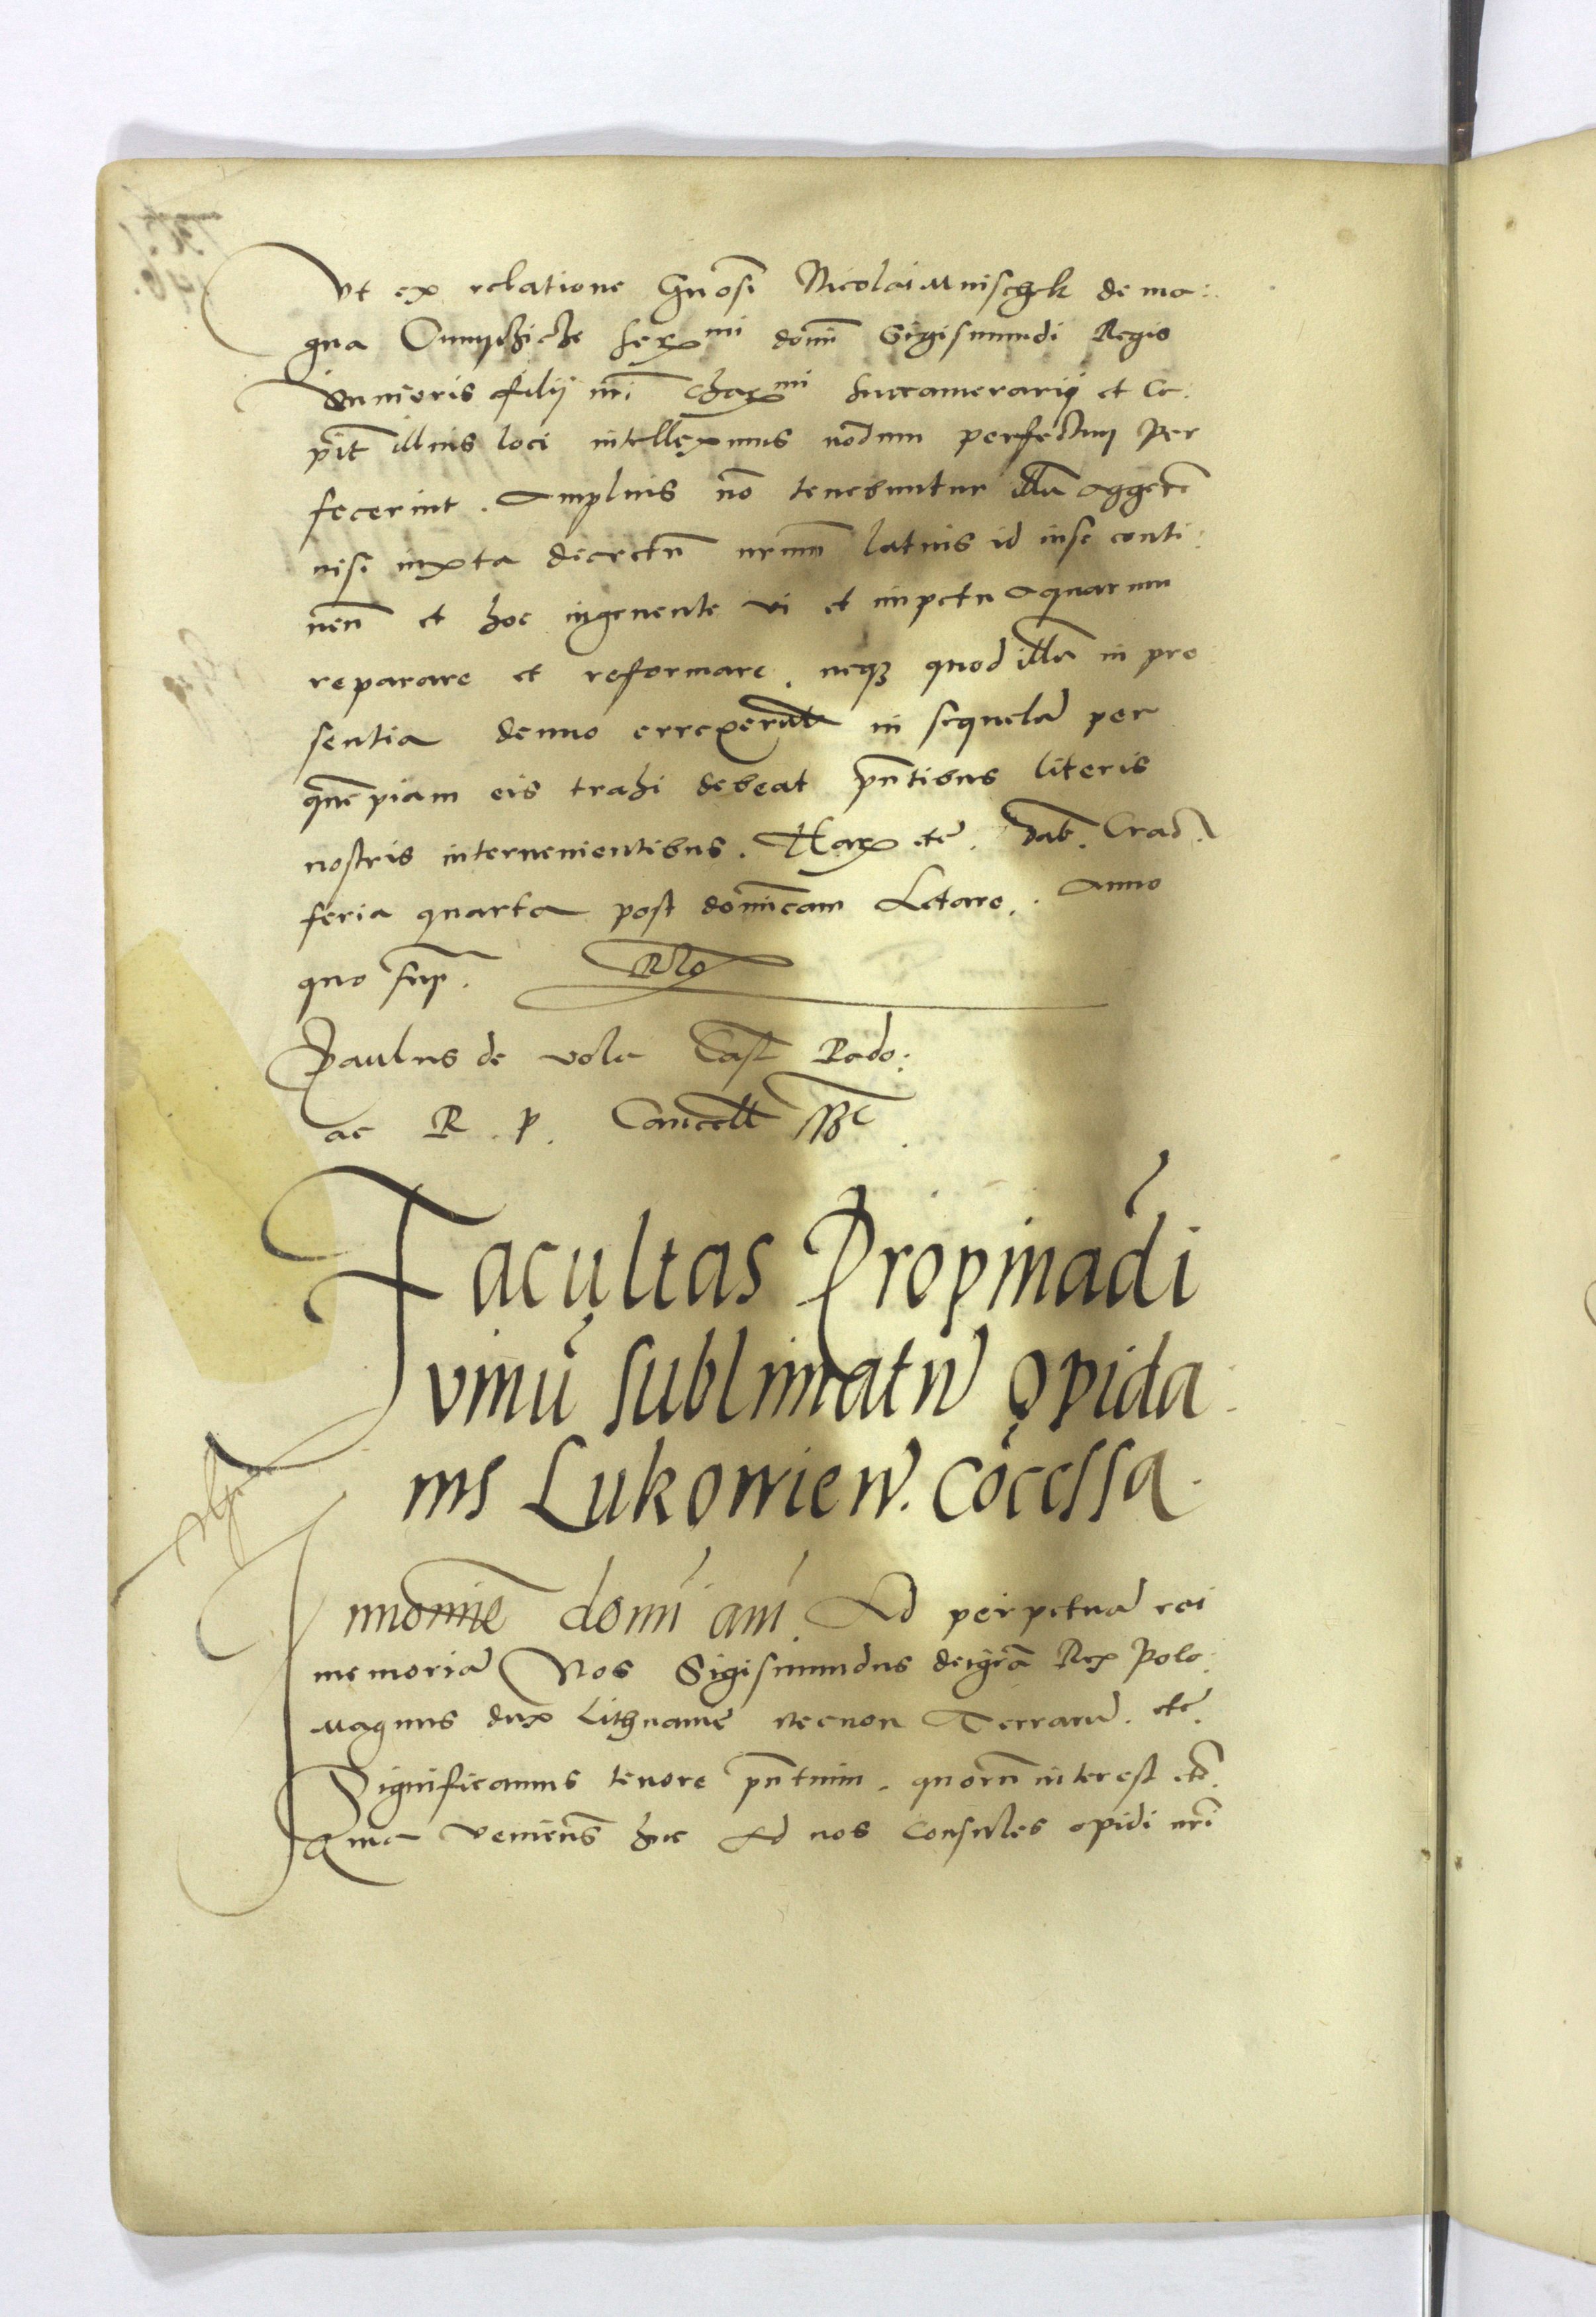 Vt ex relatione Gnosi Nicolai Mnischek de ma:
gna Ser mi domi Sigismundi Regis
Junioris filij nri Char mi succamerarij et Ca:
pit illius loci intelleximus nodum perfectum per
fecerint. Amplius no tenebuntur illu aggere
nisi iuxta decretu nrum latius id in se conti:
nen et hoc ingruente vi et impetu aquarum
reparare et reformare. neqz quod illu in pre
sentia denuo errexerunt in sequela per
quempiam eis trahi debeat pntibus literis
nostris interuenientibus. Harx etc. Dat. Crac.
feria quarta post dominicam Letare. Anno
quo sup. Rlo
Paulus de vola Cast Rado:
ac R. P. Cancell sst
Facultas Propinadi
vinu sublimatu opida:
nis Lukowien. cocessa.
In nomine domi ami. Ad perpetua rei
memoria Nos Sigismundus dei gra Rex Polo:
Magnus dux Lithuanie necnon Terraru. etc.
Significamus tenore pntium. quoru interest etc.
Quia veniens huc Ad nos Consules opidi nri